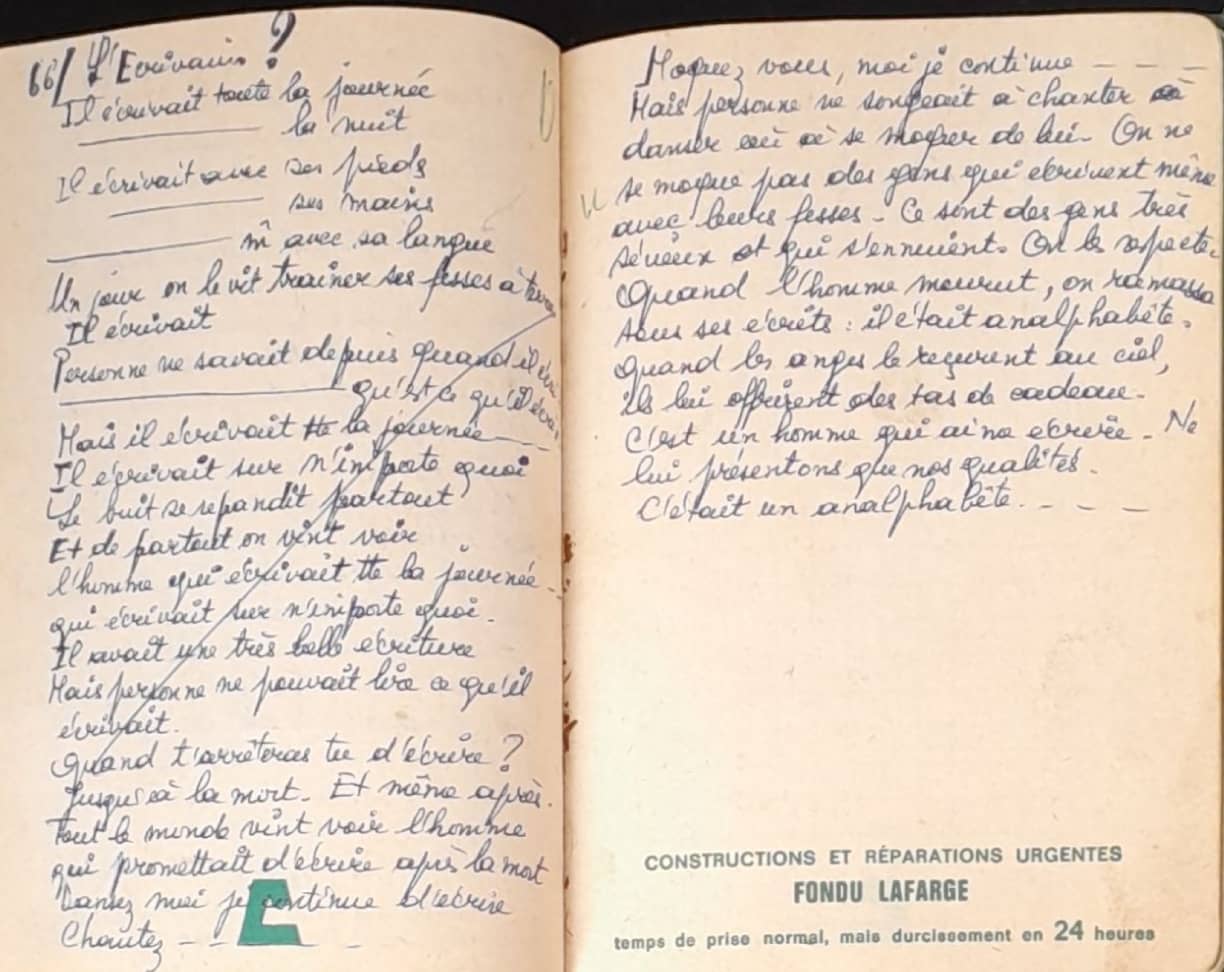 66/ L'Ecrivain ?
Il écrivait toute la journée
la nuit
Il écrivait avec ses pieds
ses mains
m̂ avec sa langue
Un jour on le vit trainer ses fesses à
Il écrivait
Personne ne savait depuis quand il
qu'est ce qu'il
Mais il écrivait tte la journée
Il écrivait sur n'importe quoi
Le buit se repandit partout
Et de partout on vint voir
l'homme qui écrivait tte la journée
qui écrivait sur n'importe quoi.
Il avait une très belle ecriture
Mais personne ne pouvait lire ce qu'il
écrivait.
Quand t'arrêteras tu d'écrire ?
Jusqu'à la mort. Et même après.
Tout le monde vint voir l'homme
qui promettait d'écrire après la mort
Dansez moi je continue d'écrire
Chantez - - -
Moquez vous, moi je continue - - - -
Mais personne ne songeait à chanter
danser où à se moquer de lui. On ne
se moque pas des gens qui écrivent même
avec leurs fesses. Ce sont des gens très
sérieux et qui s'ennuient. On les respecte.
Quand l'homme mourut, on ramassa
tous ses écrits : il était analphabête.
Quand les anges le reçurent au ciel,
ils lui offrirent des tas de cadeau.
C'est un homme qui aima ecrire. Ne
lui présentons que nos qualités.
C'était un analphabête. - - -
CONSTRUCTIONS ET RÉPARATIONS URGENTES
FONDU LAFARGE
temps de prise normal, mais durcissement en 24 heures